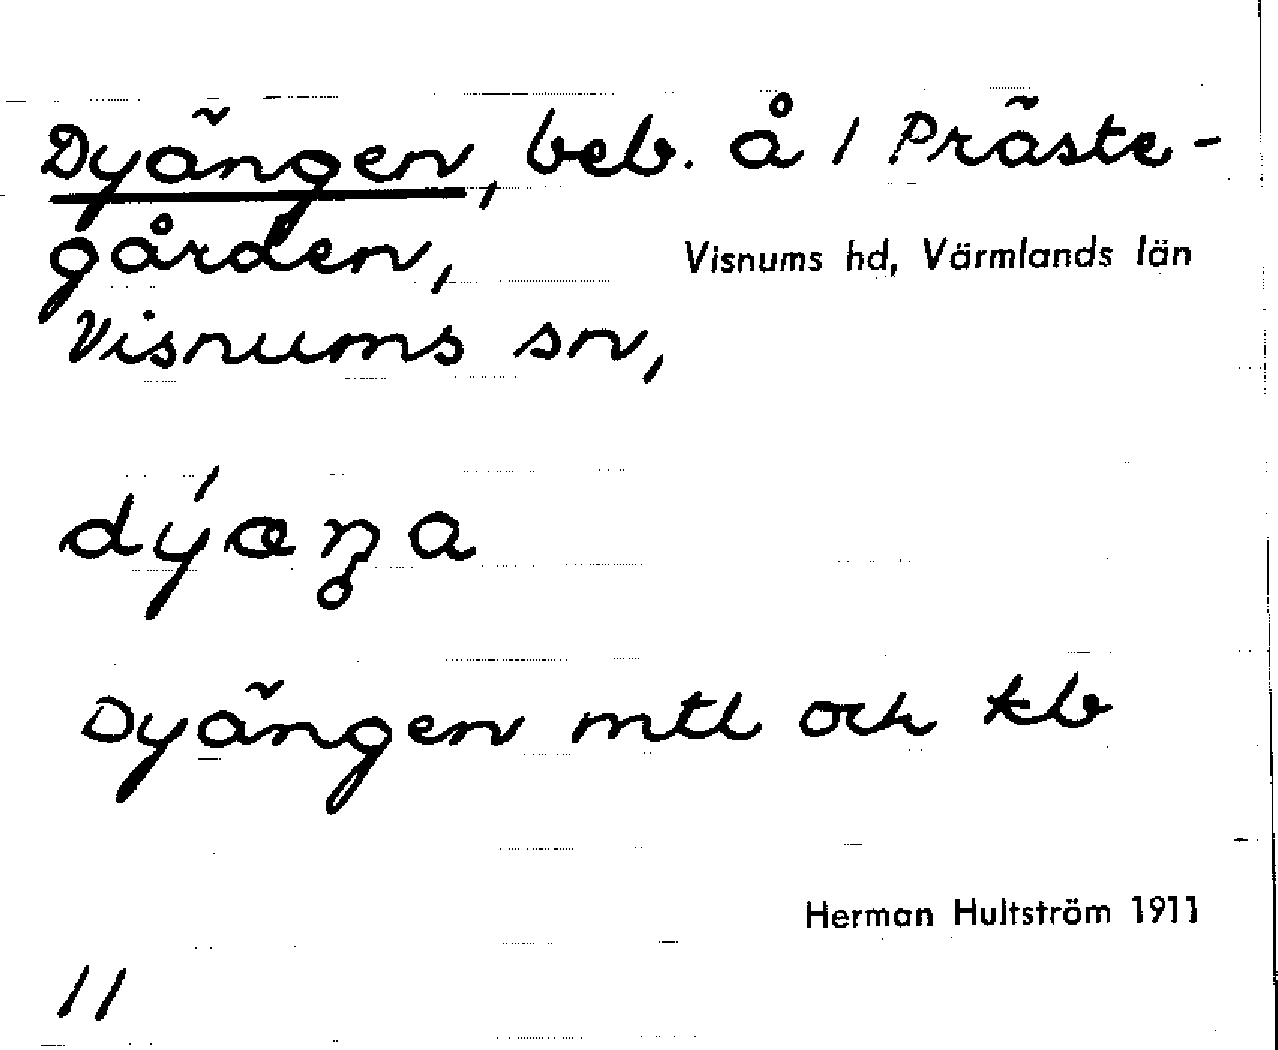 Dyängen, beb. å 1 Präste-
gården, Visnums hd, Värmlands län
Visnums sn,
dýæŋa
Dyängen mtl och kb
Herman Hultström 1911
11